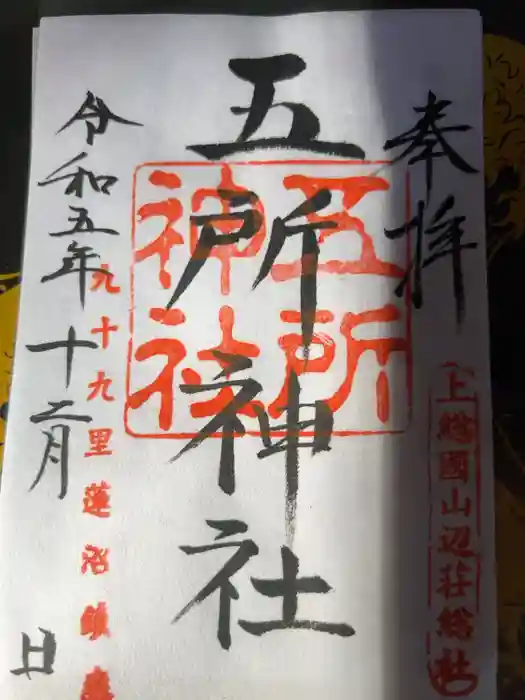 奉拝
上総國山辺荘総社
五所神社
五所神社
九十九里蓮沼鎮座
令和五年十二月 日